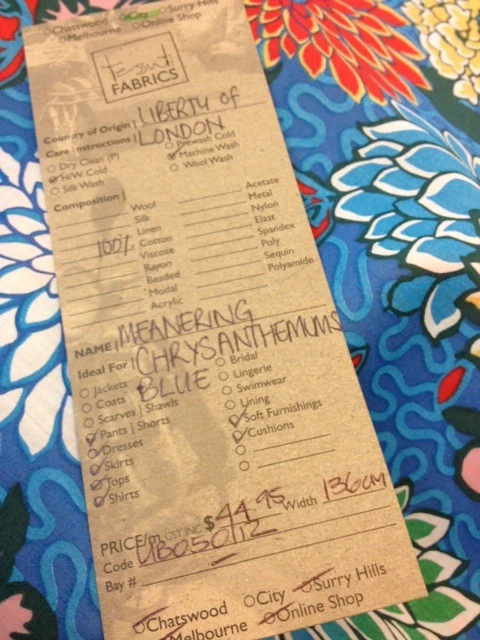 Chatswood City Surry Hills
Melbourne Online Shop
Tessuti
FABRICS
Country of Origin | LIBERTY OF
Care Instructions | LONDON
Dry Clean (P) Prewash Cold
H/W Cold Machine Wash
Silk Wash Wool Wash
Composition |
Wool Acetate
Silk Metal
Linen Nylon
100% Cotton Elast
Viscose Spandex
Rayon Poly
Beaded Sequin
Modal Polyamide
Acrylic
NAME | MEANERING
Ideal For | CHRYSANTHEMUMS
BLUE
Jackets Bridal
Coats Lingerie
Scarves | Shawls Swimwear
Pants | Shorts Lining
Dresses Soft Furnishings
Skirts Cushions
Tops
Shirts
PRICE/m GST INC $44.95 Width 136cm
Code UB050/12
Bay #
Chatswood City Surry Hills
Melbourne Online Shop